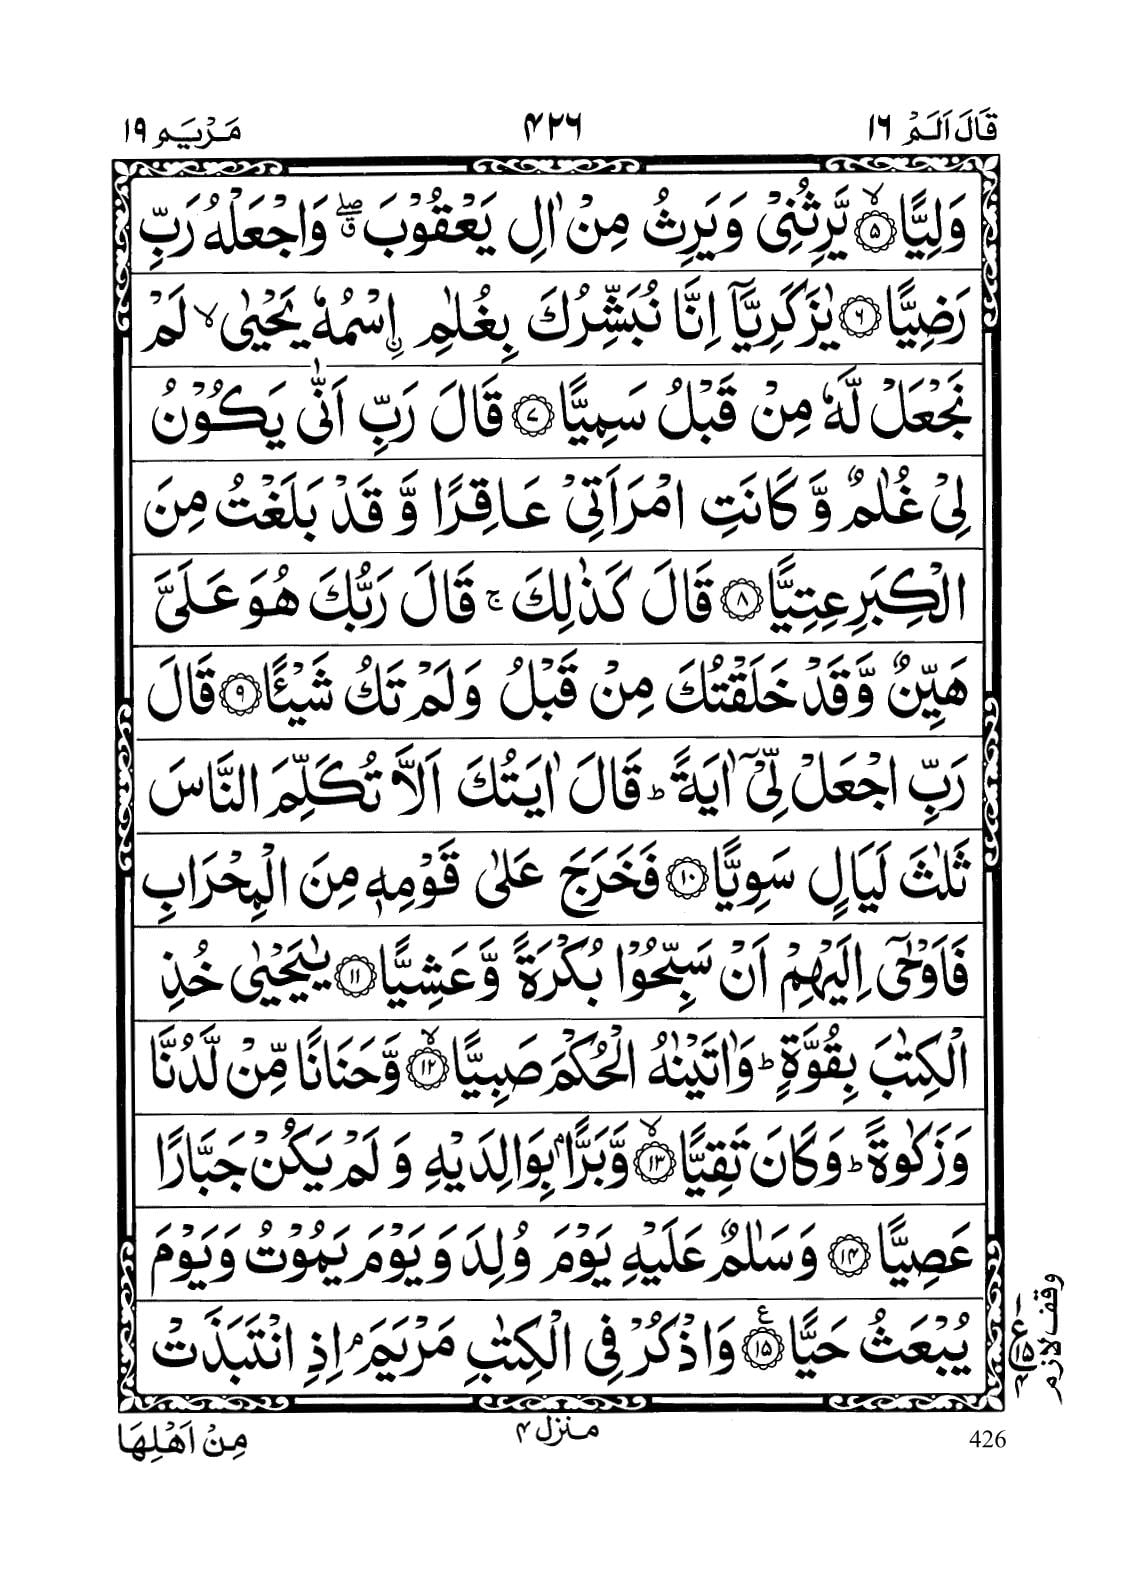 قَالَ اَلَمْ ١٦ ۴۲۶ مَرْيَم ١٩
وَلِيًّا ۙ‏﴿۵﴾ يَّرِثُنِىْ وَيَرِثُ مِنْ اٰلِ يَعْقُوْبَ ۖۗ وَاجْعَلْهُ رَبِّ
رَضِيًّا ﴿۶﴾ يٰزَكَرِيَّاۤ اِنَّا نُبَشِّرُكَ بِغُلٰمِ اۨسْمُهٗ يَحْيٰى ۙ لَمْ
نَجْعَلْ لَّهٗ مِنْ قَبْلُ سَمِيًّا ﴿۷﴾ قَالَ رَبِّ اَنّٰى يَكُوْنُ
لِىْ غُلٰمٌ وَّ كَانَتِ امْرَاَتِىْ عَاقِرًا وَّ قَدْ بَلَغْتُ مِنَ
الْكِبَرِ عِتِيًّا ﴿۸﴾ قَالَ كَذٰلِكَ ۚ قَالَ رَبُّكَ هُوَ عَلَىَّ
هَيِّنٌ وَّقَدْ خَلَقْتُكَ مِنْ قَبْلُ وَلَمْ تَكُ شَيْـًٔا ﴿۹﴾ قَالَ
رَبِّ اجْعَلْ لِّىْۤ اٰيَةً ؕ قَالَ اٰيَتُكَ اَلَّا تُكَلِّمَ النَّاسَ
ثَلٰثَ لَيَالٍ سَوِيًّا ﴿۱۰﴾ فَخَرَجَ عَلٰى قَوْمِهٖ مِنَ الْمِحْرَابِ
فَاَوْحٰۤى اِلَيْهِمْ اَنْ سَبِّحُوْا بُكْرَةً وَّعَشِيًّا ﴿۱۱﴾ يٰيَحْيٰى خُذِ
الْكِتٰبَ بِقُوَّةٍ ؕ وَاٰتَيْنٰهُ الْحُكْمَ صَبِيًّا ۙ‏﴿۱۲﴾ وَّحَنَانًا مِّنْ لَّدُنَّا
وَزَكٰوةً ؕ وَكَانَ تَقِيًّا ۙ‏﴿۱۳﴾ وَّبَرًّۢا بِوَالِدَيْهِ وَلَمْ يَكُنْ جَبَّارًا
عَصِيًّا ﴿۱۴﴾ وَسَلٰمٌ عَلَيْهِ يَوْمَ وُلِدَ وَيَوْمَ يَمُوْتُ وَيَوْمَ
يُبْعَثُ حَيًّا ﴿۱۵﴾ ع وَاذْكُرْ فِى الْكِتٰبِ مَرْيَمَ ۘ اِذِ انْتَبَذَتْ
ع ۱۵
وقف لازم
426 منزل ۴ مِنْ اَهْلِهَا